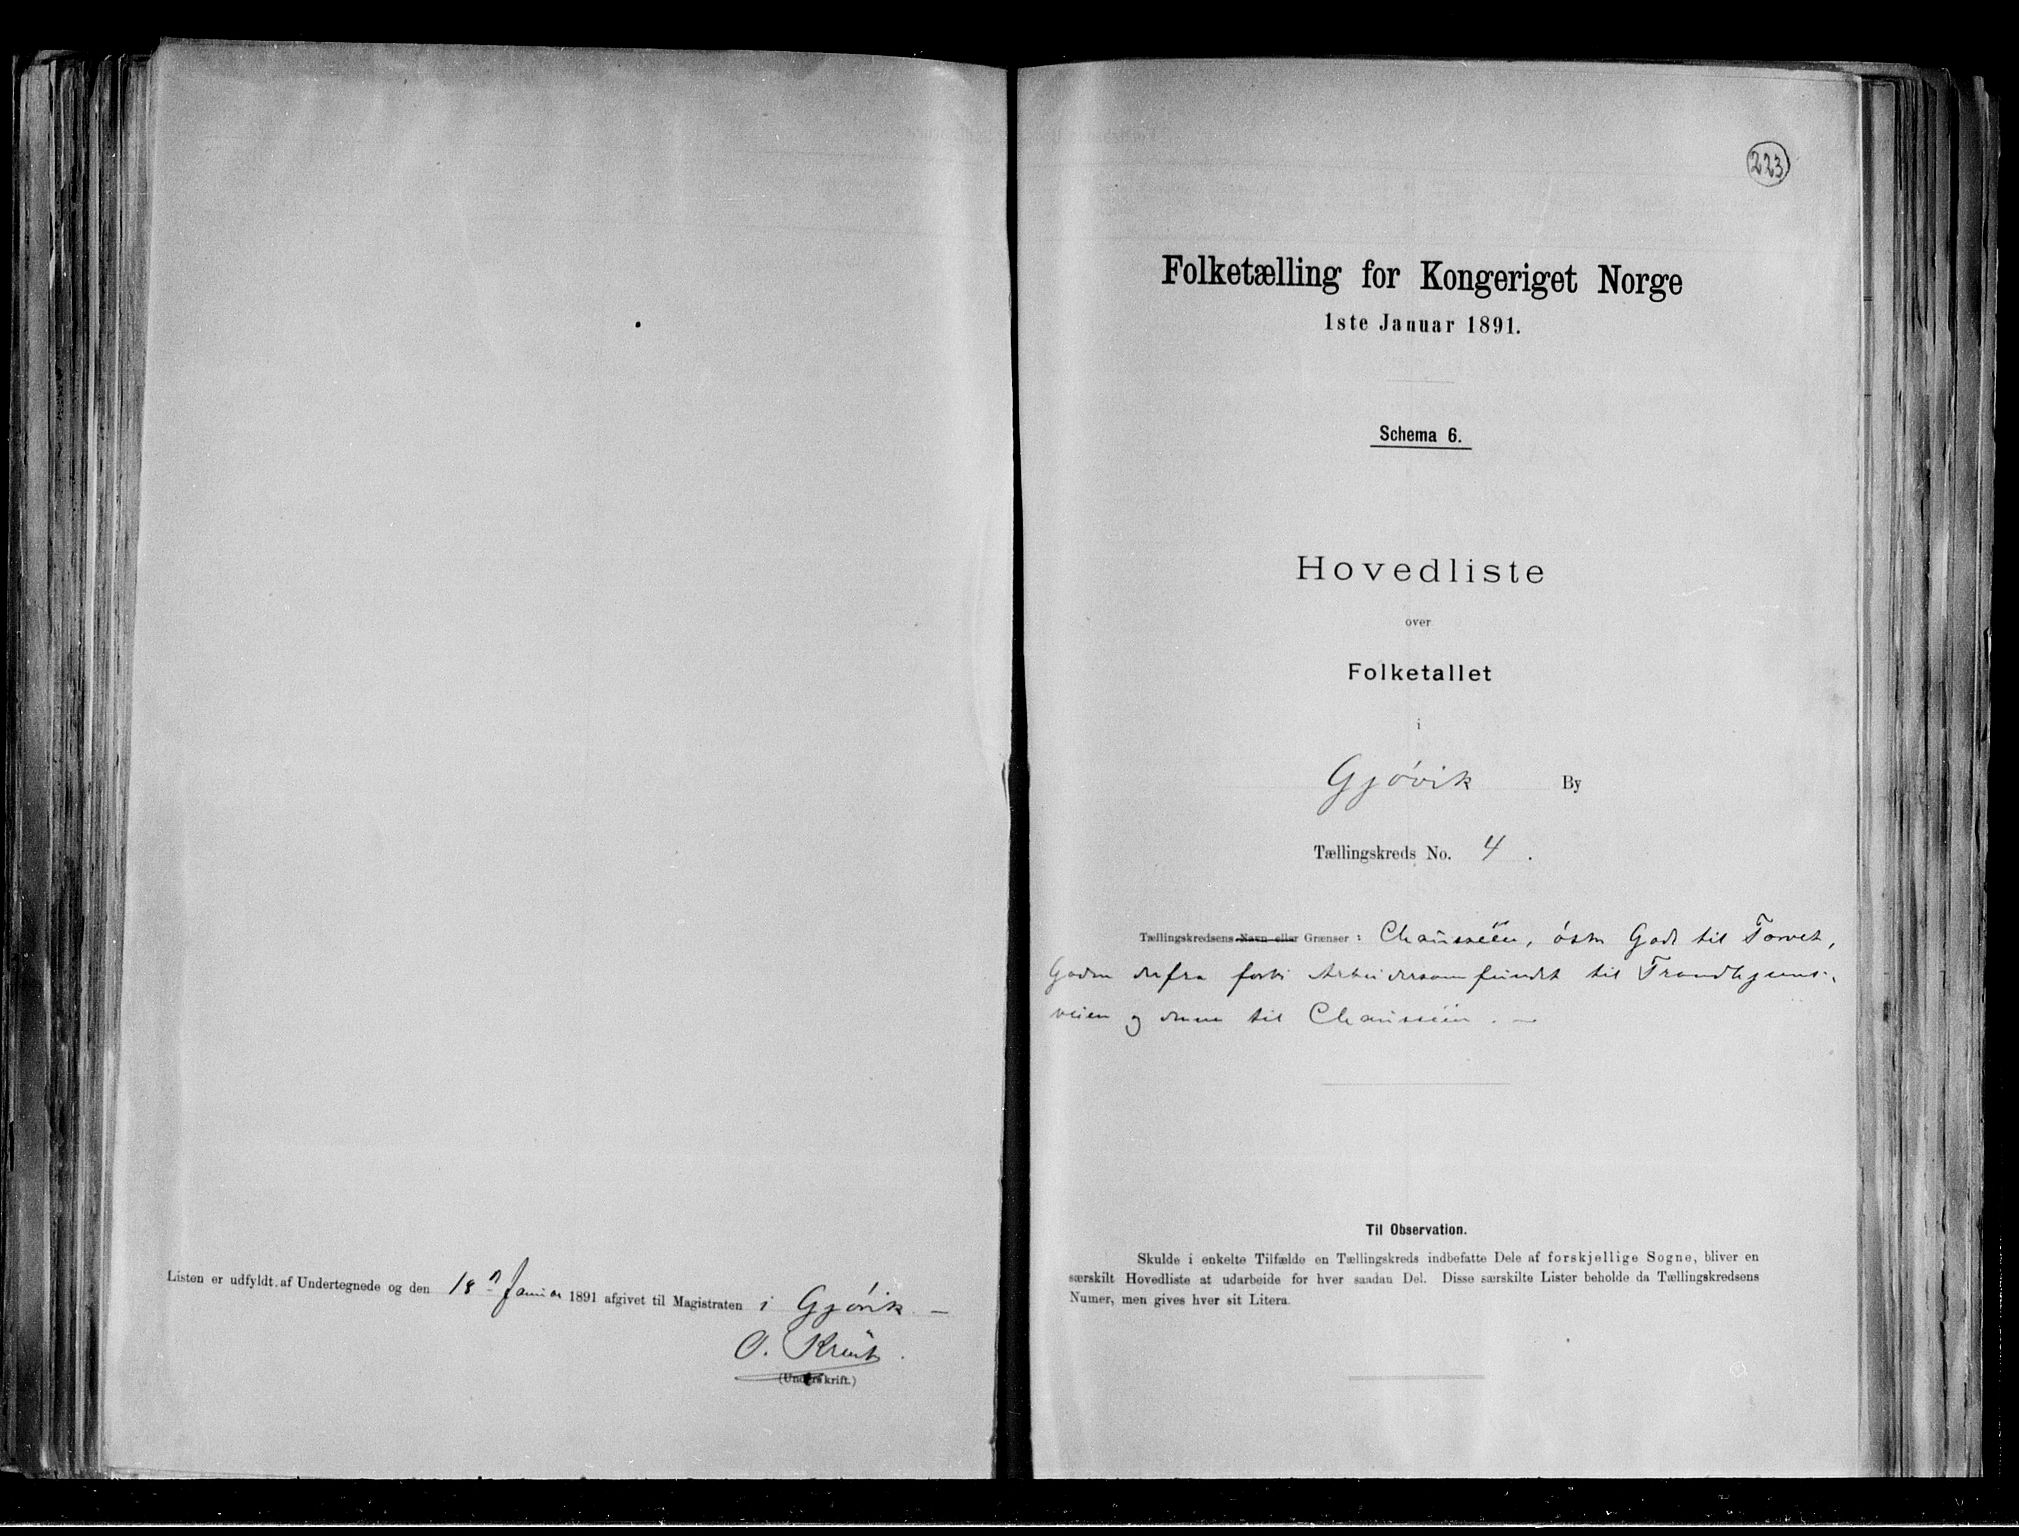 Listen er udfyldt af Undertegnede og den 18n Januar 1891 afgivet til Magistraten i Gjövik –
O.
(Underskrift.)
223
Folketælling for Kongeriget Norge
1ste Januar 1891.
Schema 6.
Hovedliste
over
Folketallet
i
Gjövik By
Tællingskreds No. 4.
Tællingskredsens Navn eller Grænser: Chausséen, östre Gade til Torvet,
Gaden derfra forbi Arbeidersamfundet til Trondhjems-
veien og denne til Chausséen. —
Til Observation.
Skulde i enkelte Tilfælde en Tællingskreds indbefatte Dele af forskjellige Sogne, bliver en
særskilt Hovedliste at udarbeide for hver saadan Del. Disse særskilte Lister beholde da Tællingskredsens
Numer, men gives hver sit Litera.